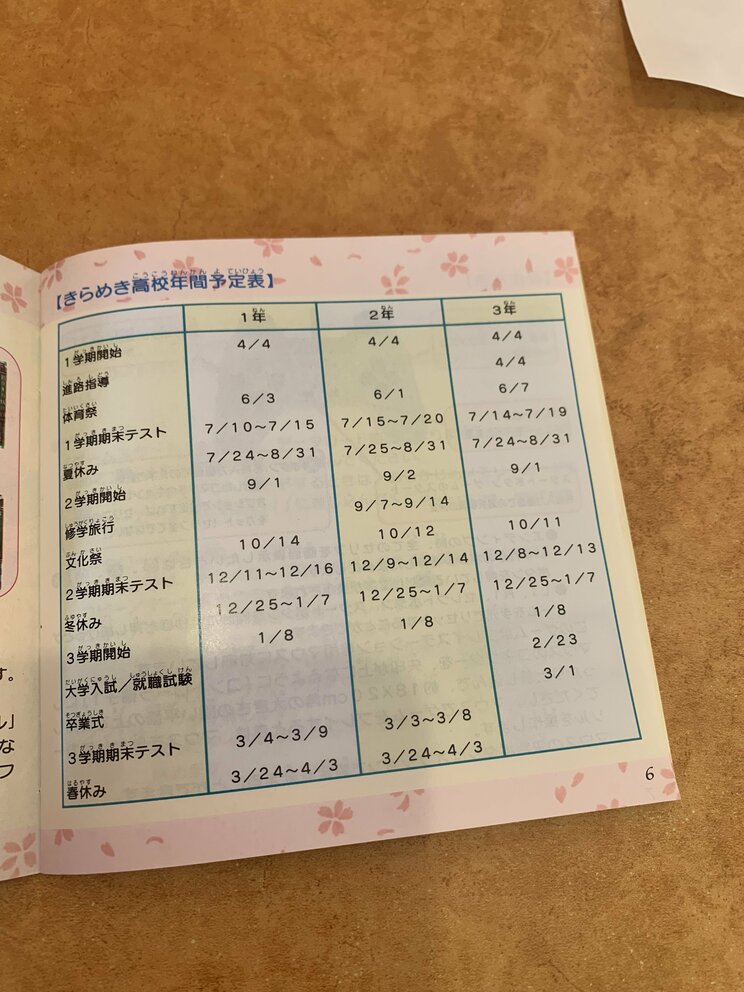 【きらめき高校年間予定表】
1年 2年 3年
1学期開始 4/4 4/4 4/4
進路指導 4/4
体育祭 6/3 6/1 6/7
1学期期末テスト 7/10～7/15 7/15～7/20 7/14～7/19
夏休み 7/24～8/31 7/25～8/31 7/24～8/31
2学期開始 9/1 9/2 9/1
修学旅行 9/7～9/14
文化祭 10/14 10/12 10/11
2学期期末テスト 12/11～12/16 12/9～12/14 12/8～12/13
冬休み 12/25～1/7 12/25～1/7 12/25～1/7
3学期開始 1/8 1/8 1/8
大学入試/就職試験 2/23
卒業式 3/1
3学期期末テスト 3/4～3/9 3/3～3/8
春休み 3/24～4/3 3/24～4/3
6
す。
ル」
な
フ